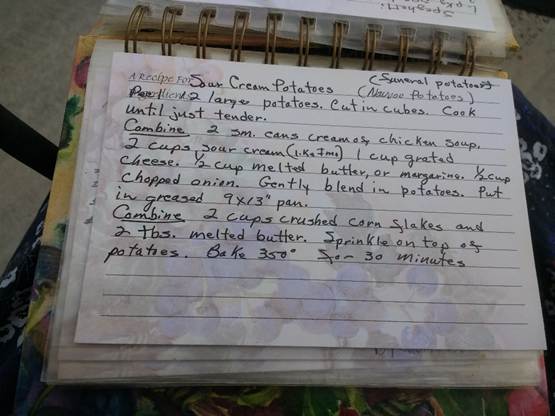 Spaghetti
A RECIPE FOR Sour Cream Potatoes (Funeral potatoes)
(Nauvoo Potatoes)
12 large potatoes. Cut in cubes. Cook
until just tender.
Combine 2 sm. cans cream of chicken soup,
2 cups sour cream 1 cup grated
cheese. 1/2 cup melted butter, or margarine. 1/2 cup
chopped onion. Gently blend in potatoes. Put
in greased 9x13" pan.
Combine 2 cups crushed corn flakes and
2 Tbs. melted butter. Sprinkle on top of
potatoes. Bake 350° for 30 minutes